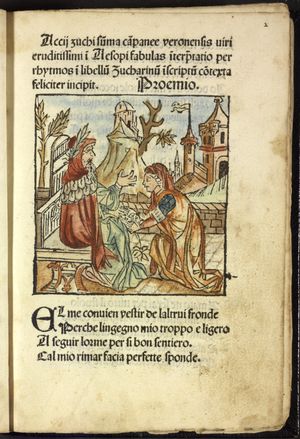 2
Accij zuchi sũma cãpanee veronensis viri
eruditissimi ĩ Aesopi fabulas ĩterp̃tatio per
rhytmos ĩ libellũ Zucharinũ ĩscriptũ cõtexta
feliciter incipit. Proemio.
EL me conuien vestir de laltrui fronde
Perche lingegno mio troppo e ligero
A seguir lorme per si bon sentiero.
Cal mio rimar facia perfette sponde.